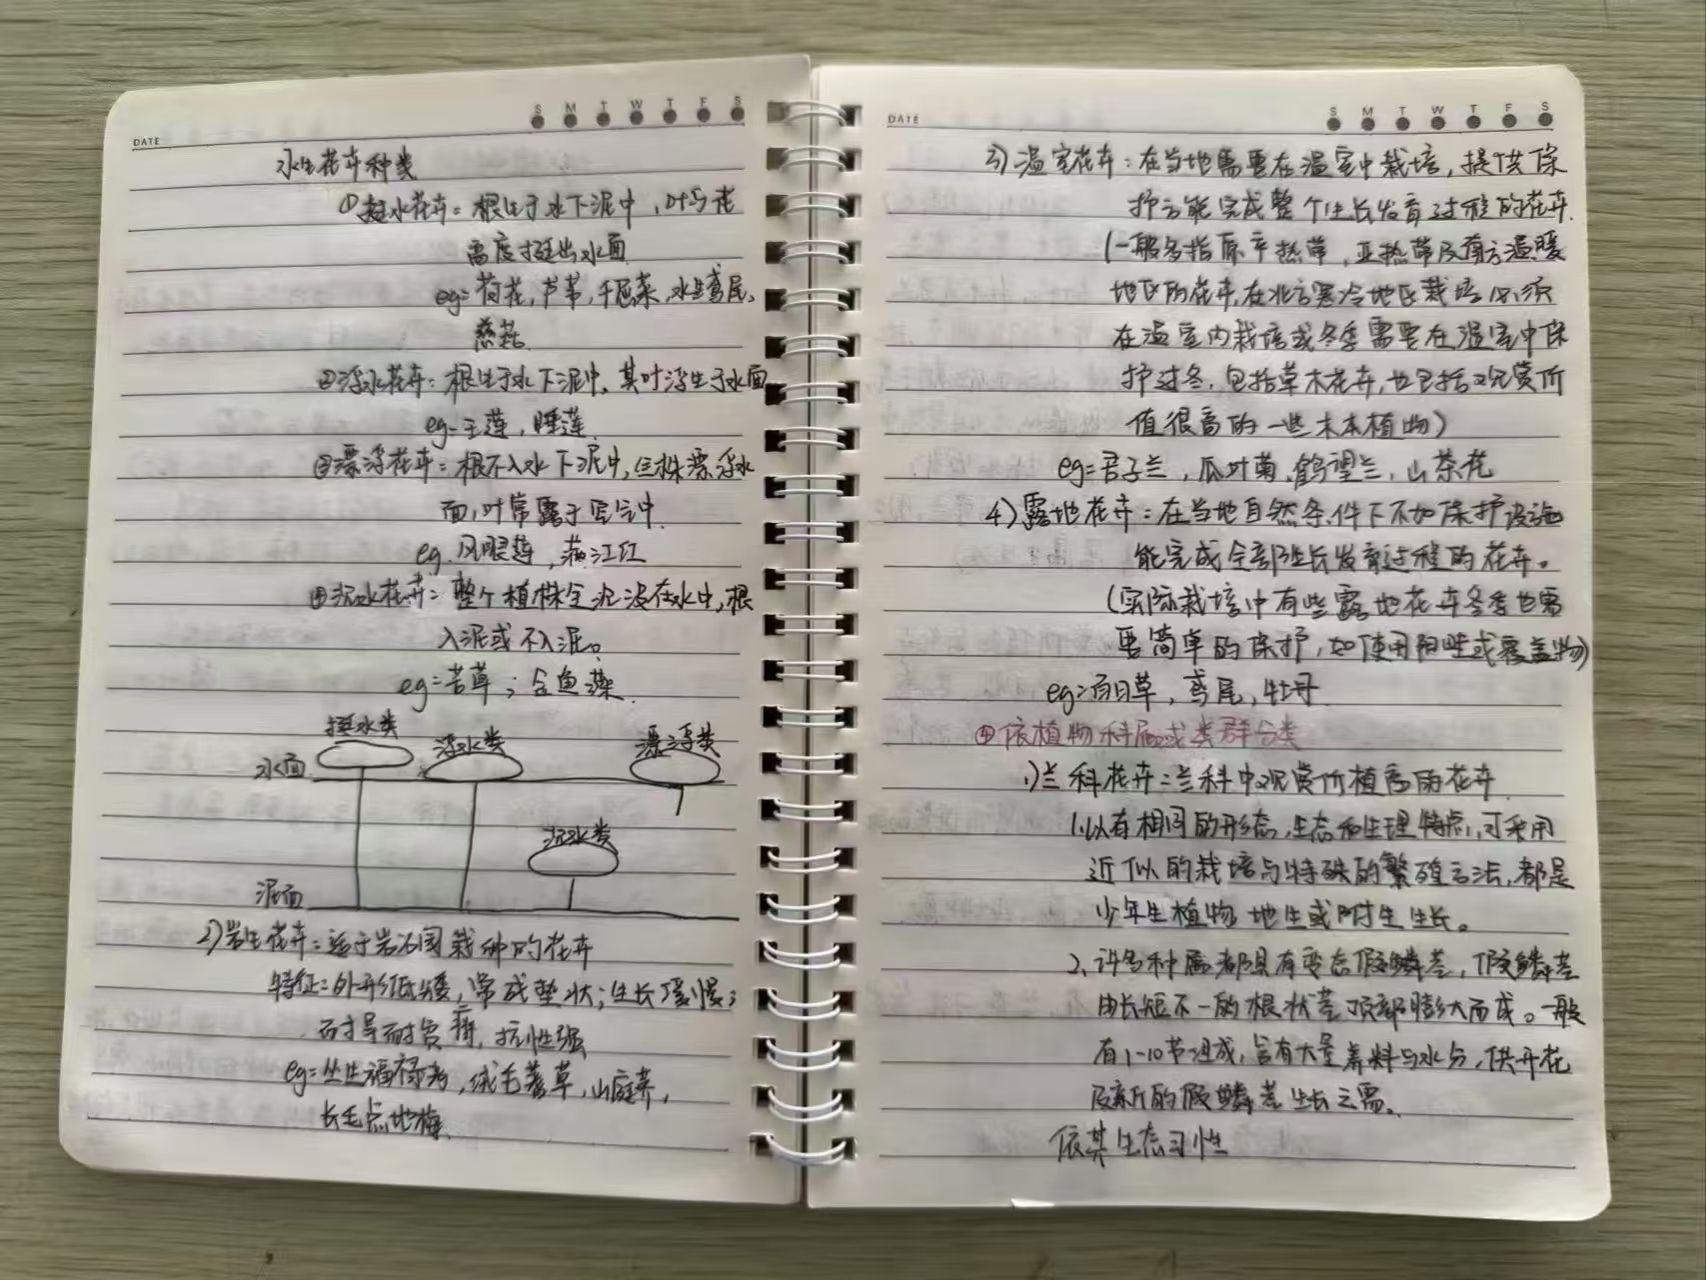 DATE
S M T W T F S
水生花卉种类
①挺水花卉：根生于水下泥中，叶与花
高度挺出水面
eg=荷花，芦苇，千屈菜，水生鸢尾、
慈菇
②浮水花卉：根生于水下泥中，其叶浮生于水面
eg=王莲，睡莲
③漂浮花卉：根不入水下泥中，全株漂浮水
面，叶常露于空气中
eg. 凤眼莲，满江红
④沉水花卉：整个植株全沉没在水中，根
入泥或不入泥。
eg=苦草；金鱼藻
挺水类
浮水类
漂浮类
水面
沉水类
泥面
2)岩生花卉：适于岩石园栽种的花卉
特征：外形低矮，常成垫状；生长缓慢；
耐旱耐贫瘠，抗性强
eg=丛生福禄考，绒毛蓍草，山庭荠，
长毛点地梅
DATE
S M T W T F S
3)温室花卉：在当地需要在温室中栽培，提供保
护方能完成整个生长发育过程的花卉.
(一般多指原产热带，亚热带及南方温暖
地区的花卉，在北方寒冷地区栽培必须
在温室内栽培或冬季需要在温室中保
护过冬，包括草木花卉，也包括观赏价
值很高的一些木本植物)
eg=君子兰，瓜叶菊，鹤望兰，山茶花
4)露地花卉：在当地自然条件下不加保护设施
能完成全部生长发育过程的花卉。
(实际栽培中有些露地花卉冬季也需
要简单的保护，如使用阳畦或覆盖物)
eg=百日草，鸢尾，牡丹
④依植物科属或类群分类
1)兰科花卉：兰科中观赏价植高的花卉
1.以有相同的形态，生态和生理特点，可采用
近似的栽培与特殊的繁殖方法，都是
少年生植物 地生或附生生长。
2、许多种属都具有变态假鳞茎，假鳞茎
由长短不一的根状茎顶部膨大而成。一般
有1-10节组成，含有大量养料与水分，供开花
及新的假鳞茎生长之需。
依其生态习性